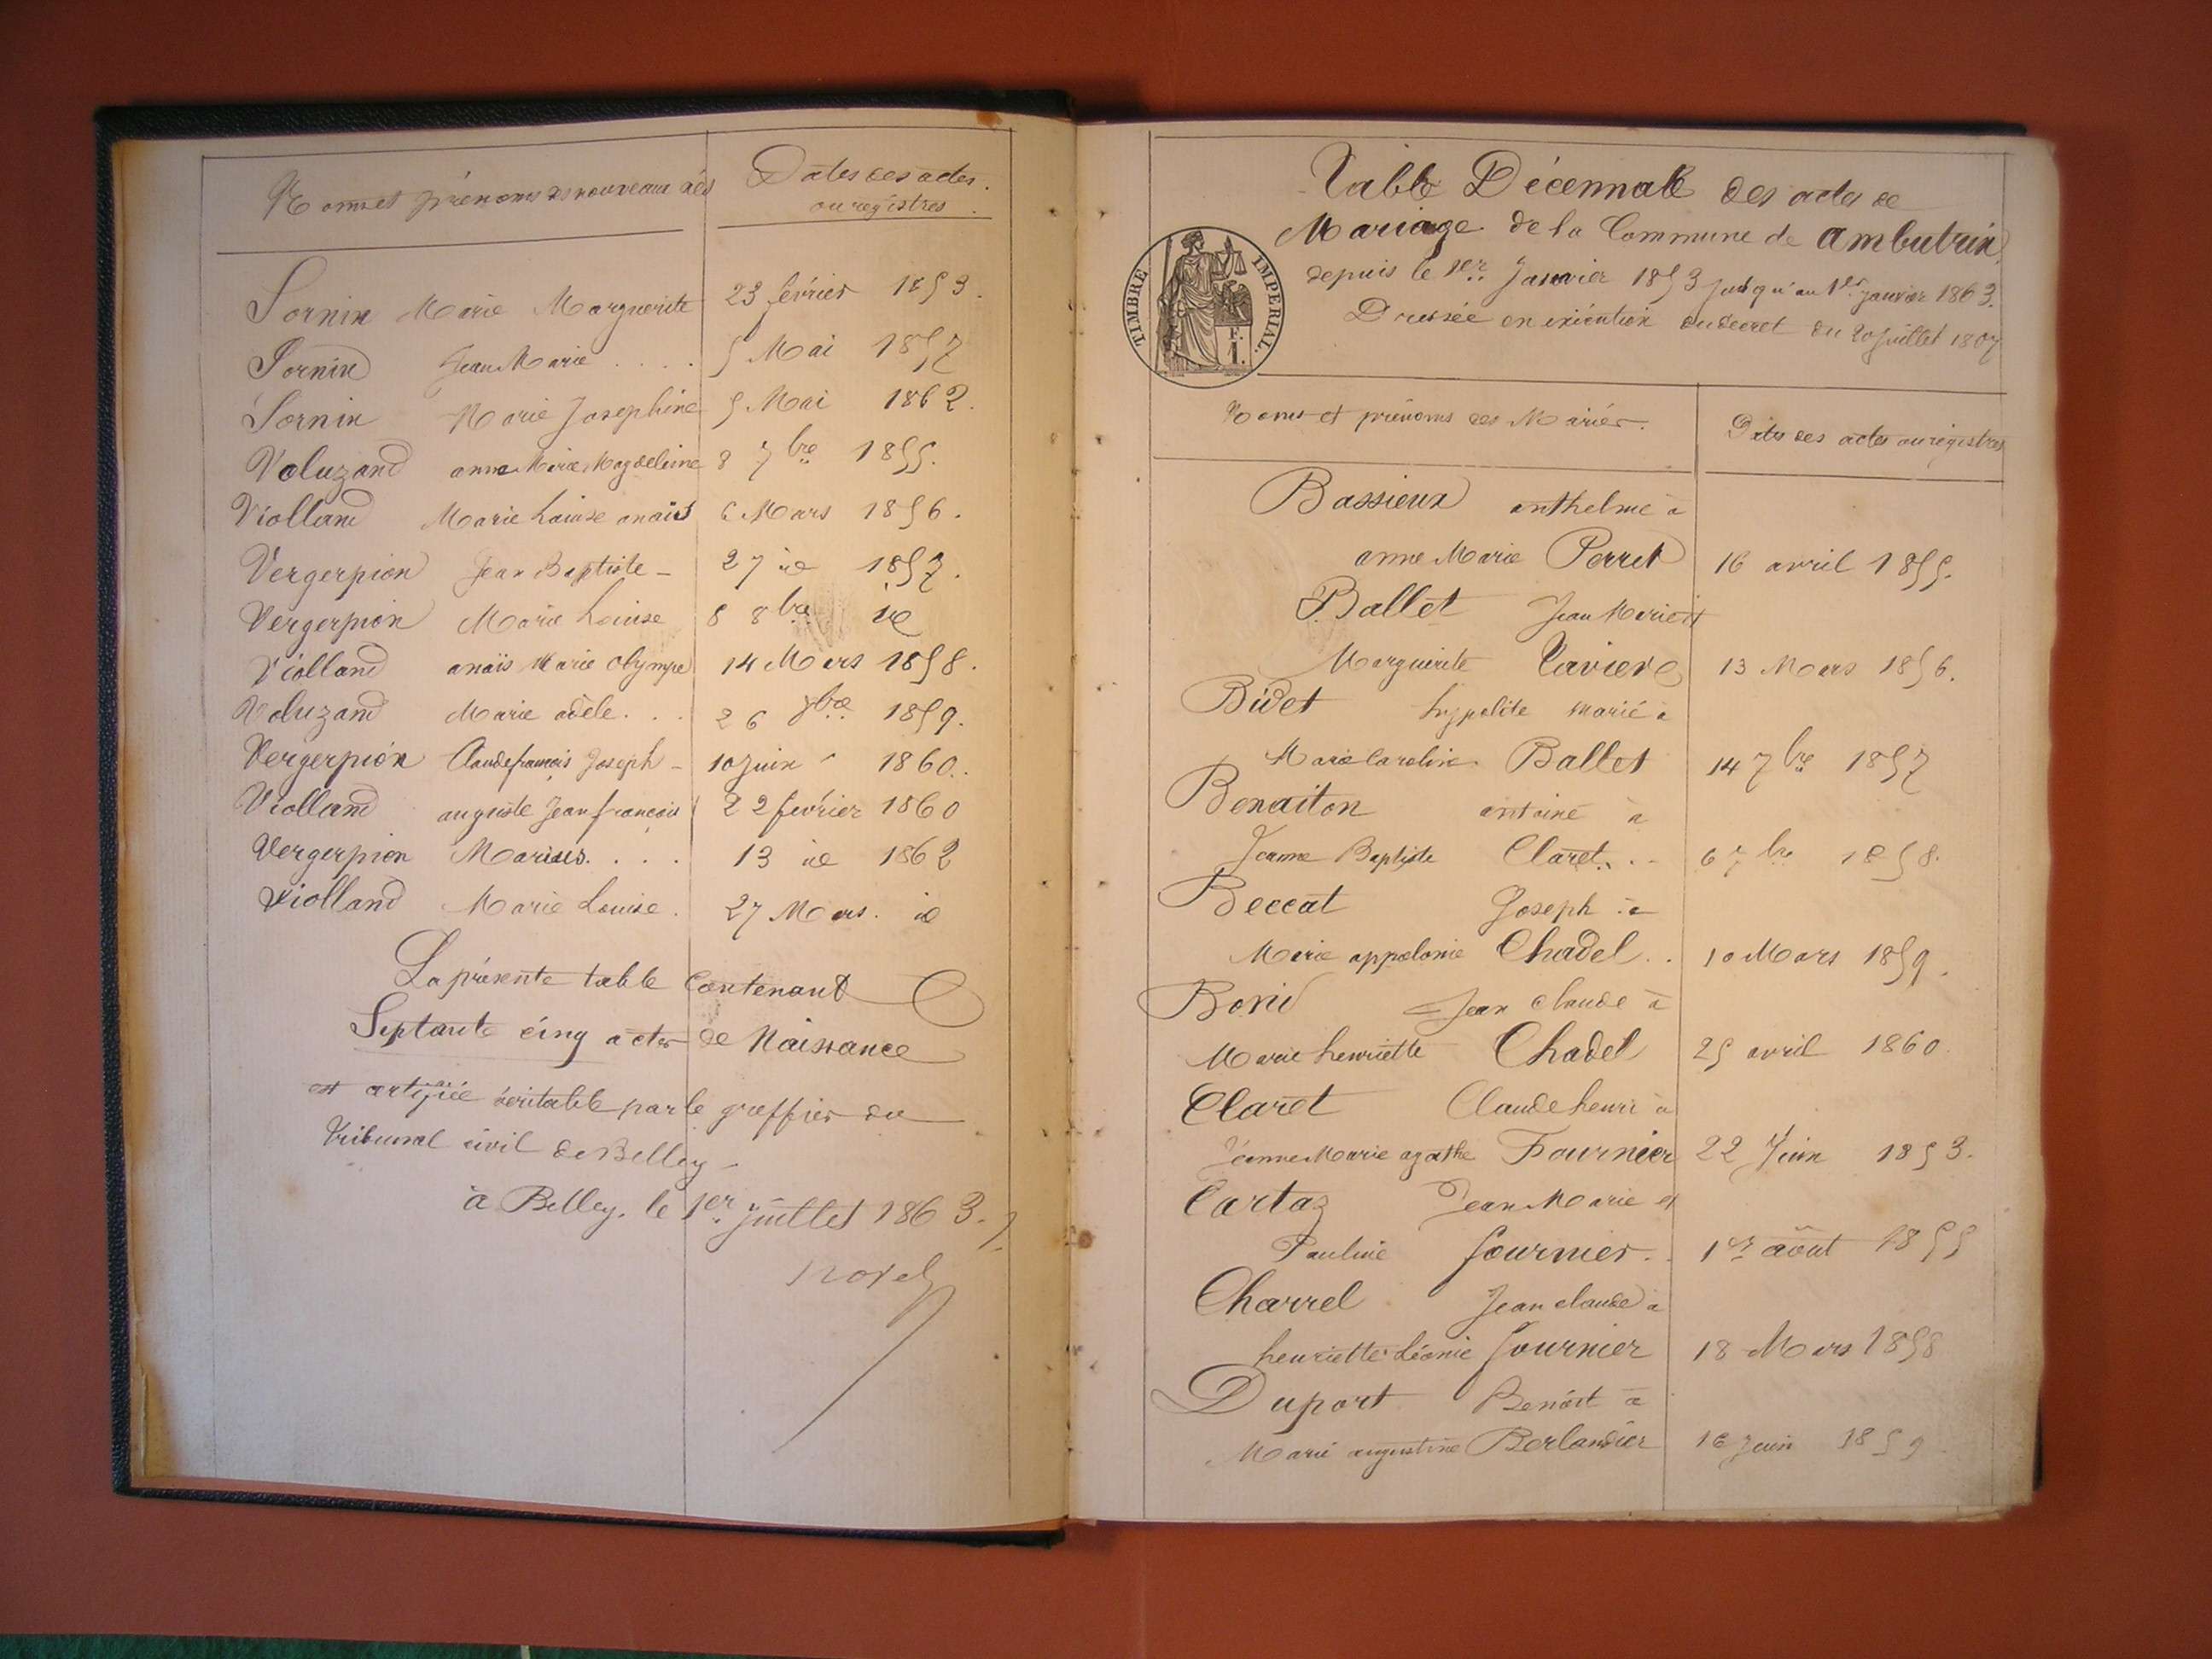 Noms et prénoms des nouveaux nés
Dates des actes
ou registres
Sornin Marie Marguerite 23 février 1853.
Sornin Jean Marie .... 5 Mai 1857
Sornin Marie Josephine 5 Mai 1862.
Voluzand anne Marie Magdeleine 8 7bre 1855.
Violland Marie Louise anaïs 6 Mars 1856.
Vergerpion Jean Baptiste - 27 id 1857.
Vergerpion Marie Louise 8 8bre id
Violland anaïs Marie Olympe 14 Mars 1858.
Voluzand Marie adèle... 26 1859.
Vergerpion Claude françois Joseph - 10 juin 1860.
Violland auguste Jean françois 22 février 1860
Vergerpion Marius.... 13 id 1862
Violland Marie Louise. 27 Mars. id
La présente table Contenant
Septante cinq actes de Naissance
est certifiée véritable par le greffier du
Tribunal civil de Belley -
à Belley. le 1er juillet 1863.
TIMBRE IMPERIAL.
Table Décennale des actes de
Mariage de la Commune de Ambutrix
depuis le 1er Janvier 1853 jusqu'au 1er janvier 1863.
Dressée en exécution du décret du 20 Juillet 1807
Noms et prénoms des Mariés.
Dates des actes ou registres
Bassieux anthelme à
anne Marie Perret 16 avril 1855.
Ballet Jean Marie et
Marguerite Taviere 13 Mars 1856.
Bidet hyppolite marié à
Marie Caroline Ballet 14 7bre 1857
Benaiton antoine à
Jeanne Baptiste Claret... 6 7bre 1858.
Beccat Joseph à
Marie appolonie Chadel.. 10 Mars 1859.
Jean Claude à
Marie henriette Chadel 25 avril 1860.
Claret Claude henri à
Jeanne Marie agathe Fournier 22 Juin 1853.
Cartaz Jean Marie et
Pauline fournier.. 1er août 1855
Charrel Jean claude à
henriette Léonie fournier 18 Mars 1858
Duport Benoit à
Marie augustine Berlandier 16 Juin 1859